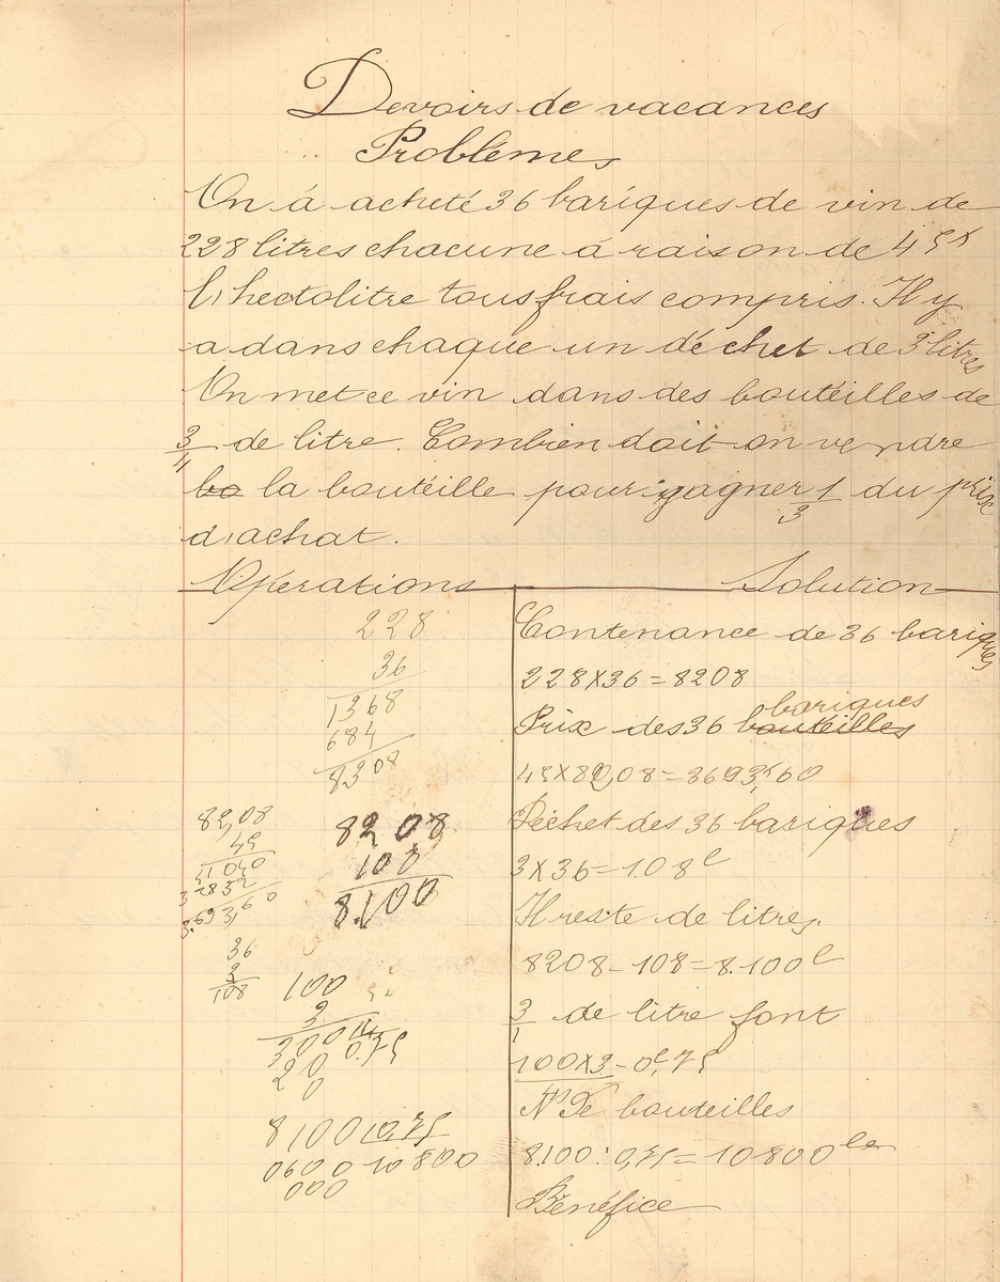 Devoirs de vacances
Problèmes
On á acheté 36 bariques de vin de
228 litres chacune á raison de 45ᶠ
l'hectolitre tous frais compris. Il y
a dans chaque un déchet de 3 litres
On met ce vin dans des bouteilles de
3/4 de litre. Combien doit on vendre
bo la bouteille pour gagner 1/3 du prix
d'achat.
Opérations
228
36
1368
684
8308
82,08
45
41040
32832
3.693,60
8208
108
8.100
36
3
108
100
3
300 4
20 0.75
0
8100 0,75
0600 10800
000
Solution
Contenance de 36 bariques
228X36=8208
bariques
Prix des 36 bouteilles
45X82,08=3693ᶠ,60
Déchet des 36 bariques
3X36=108ˡ
Il reste de litres.
8208-108=8.100ˡ
3/ de litre font
100X3-0ˡ,75
Nᵇ De bouteilles
8.100:0,75=10800ˡᵉˢ
Bénéfice